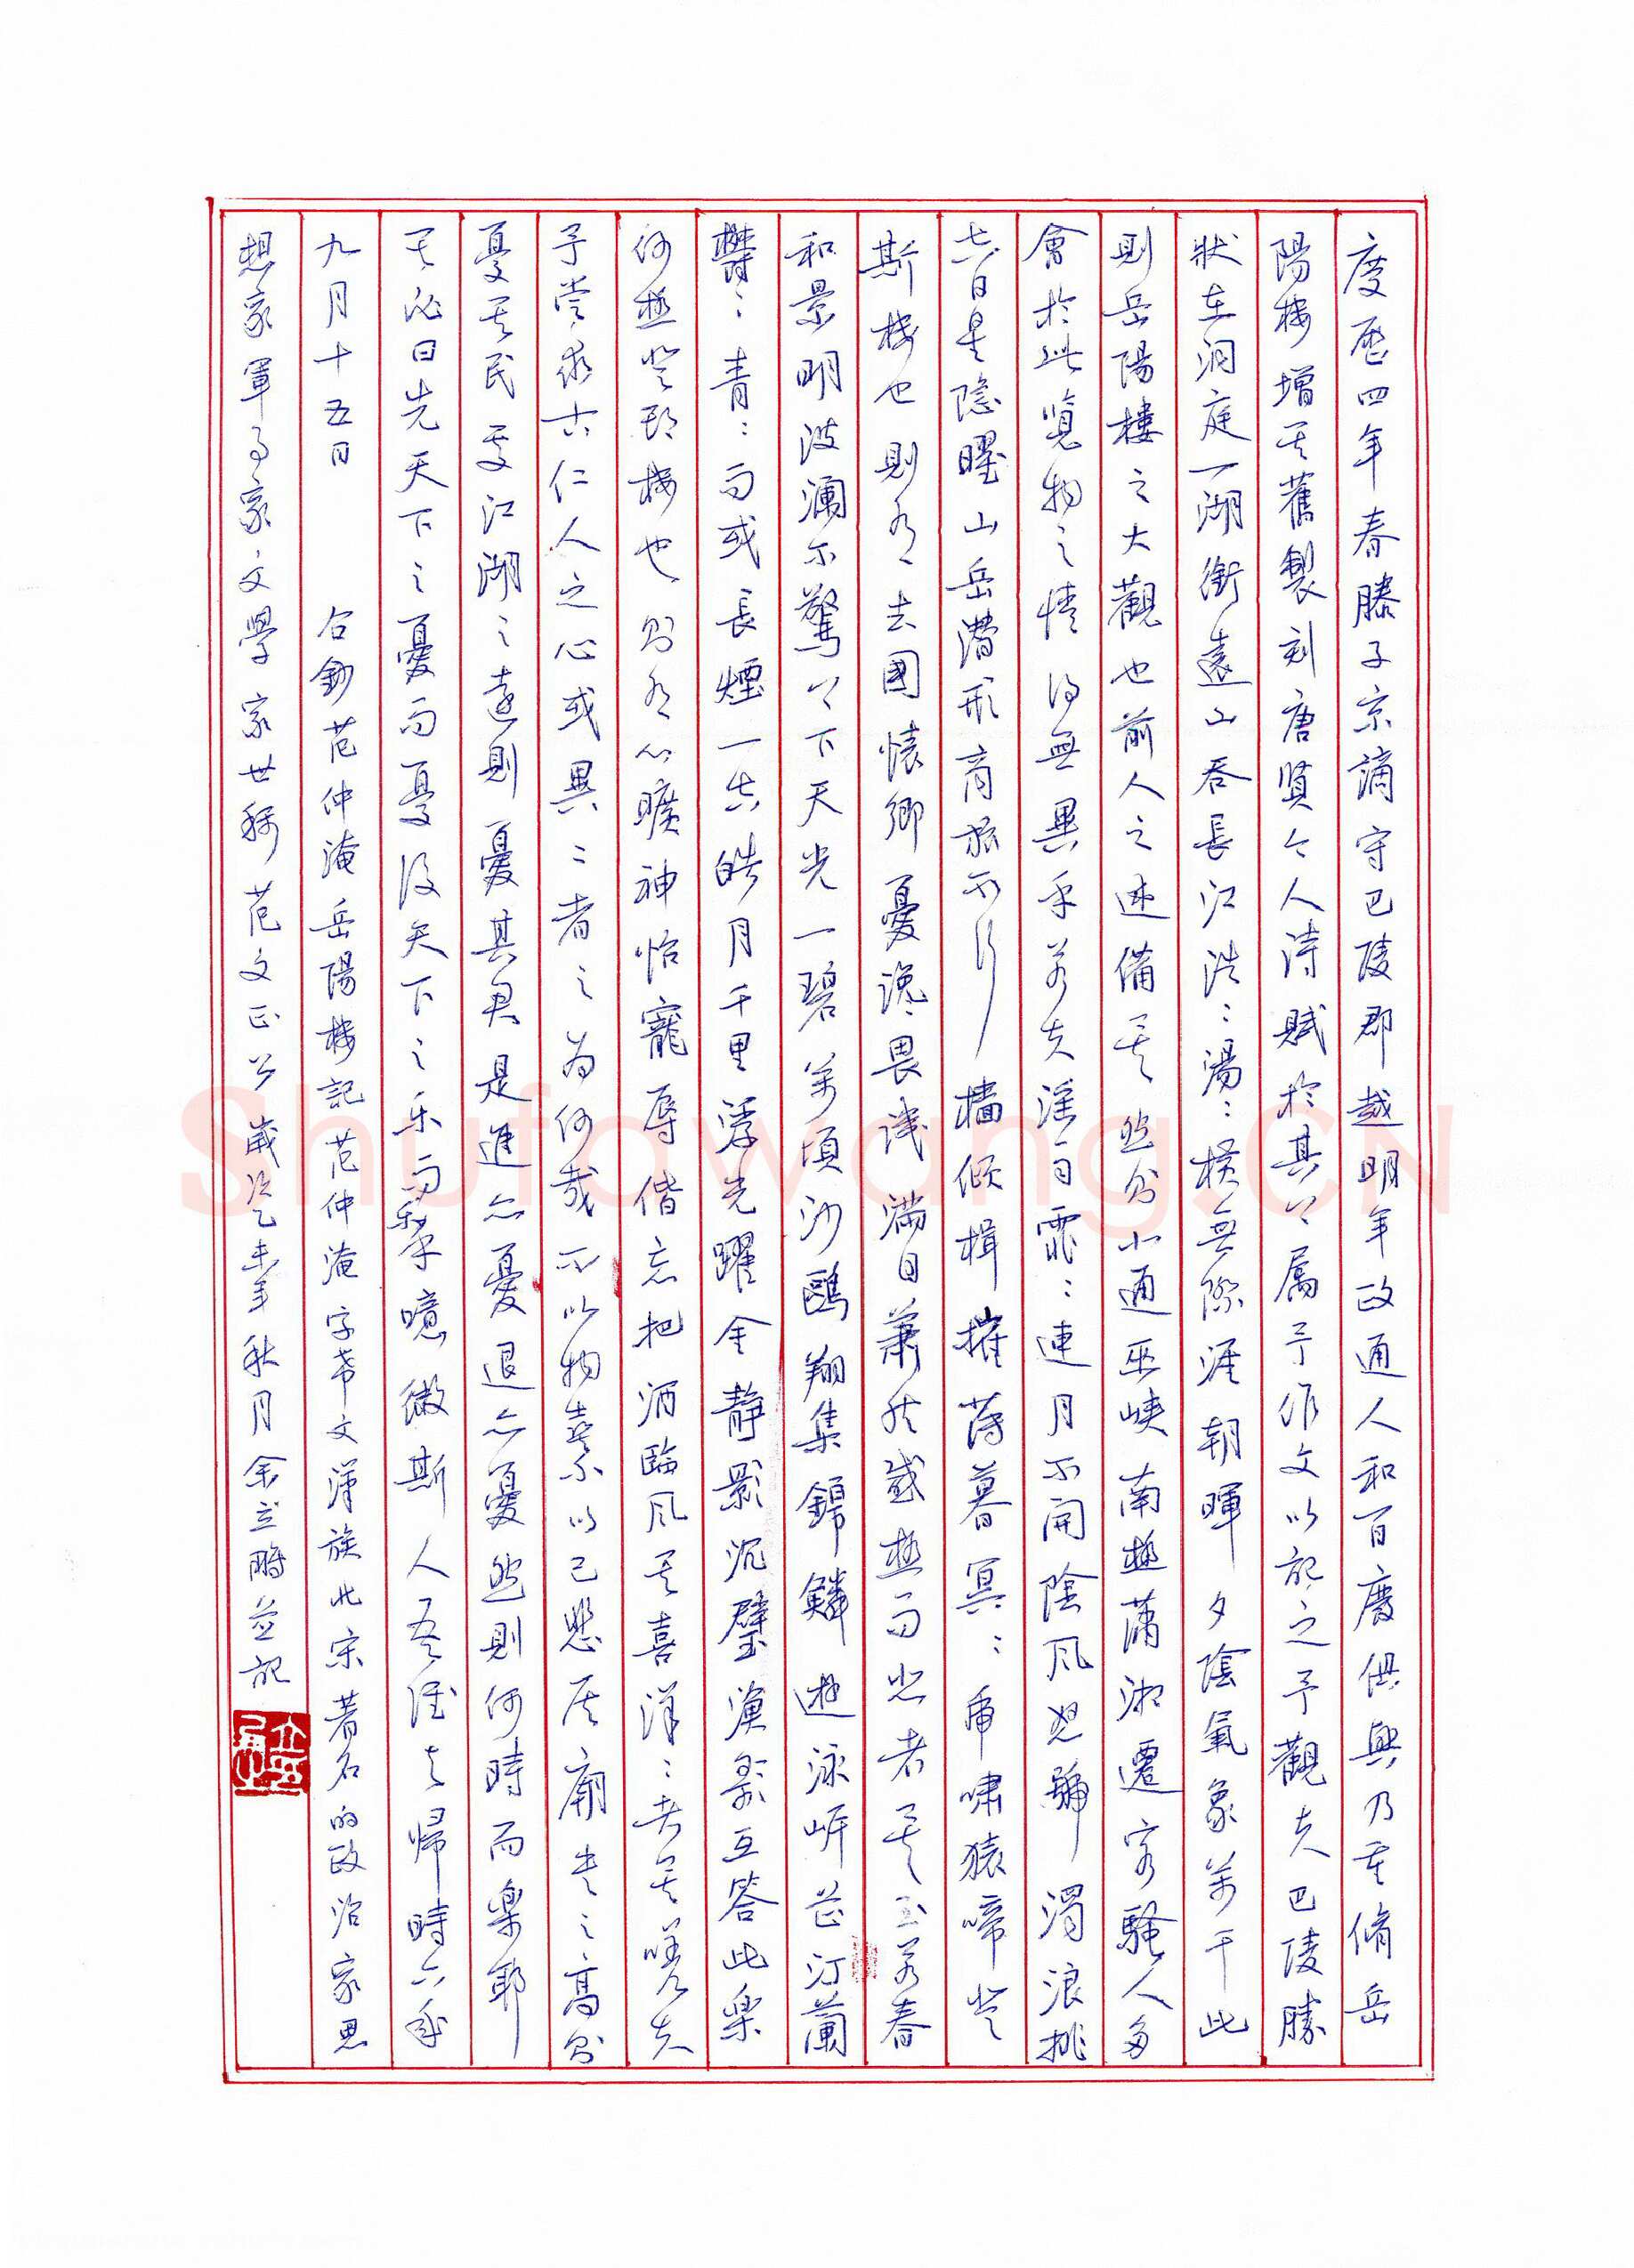 慶歷四年春滕子京謫守巴陵郡越明年政通人和百廢俱興乃重脩岳
陽樓增其舊製刻唐賢今人詩賦於其上属予作文以記之予觀夫巴陵勝
狀在洞庭一湖銜遠山吞長江浩〻湯〻橫無際涯朝暉夕陰氣象萬千此
則岳陽樓之大觀也前人之述備矣然則北通巫峽南極瀟湘遷客騷人多
會於此覽物之情得無異乎若夫淫雨霏〻連月不開陰風怒號濁浪排
空日星隐曜山岳潛形商旅不行檣傾楫摧薄暮冥〻虎嘯猿啼登
斯樓也則有去國懷鄉憂讒畏譏滿目蕭然感極而悲者矣至若春
和景明波瀾不驚上下天光一碧萬頃沙鷗翔集錦鱗遊泳岸芷汀蘭
鬱〻青〻而或長煙一空皓月千里浮光躍金静影沉璧漁歌互答此樂
何極登斯樓也則有心曠神怡寵辱偕忘把酒臨风其喜洋〻者矣嗟夫
予嘗求古仁人之心或異二者之為何哉不以物喜不以己悲居廟堂之高則
憂其民處江湖之遠則憂其君是進亦憂退亦憂然則何時而樂耶
其必曰先天下之憂而憂後天下之乐而樂噫微斯人吾誰与歸時六年
九月十五日 右鈔范仲淹岳陽樓記范仲淹字希文漢族北宋著名的政治家思
想家軍事家文學家世稱范文正公歲次乙未年秋月余立鵬並記
Shufawang.CN